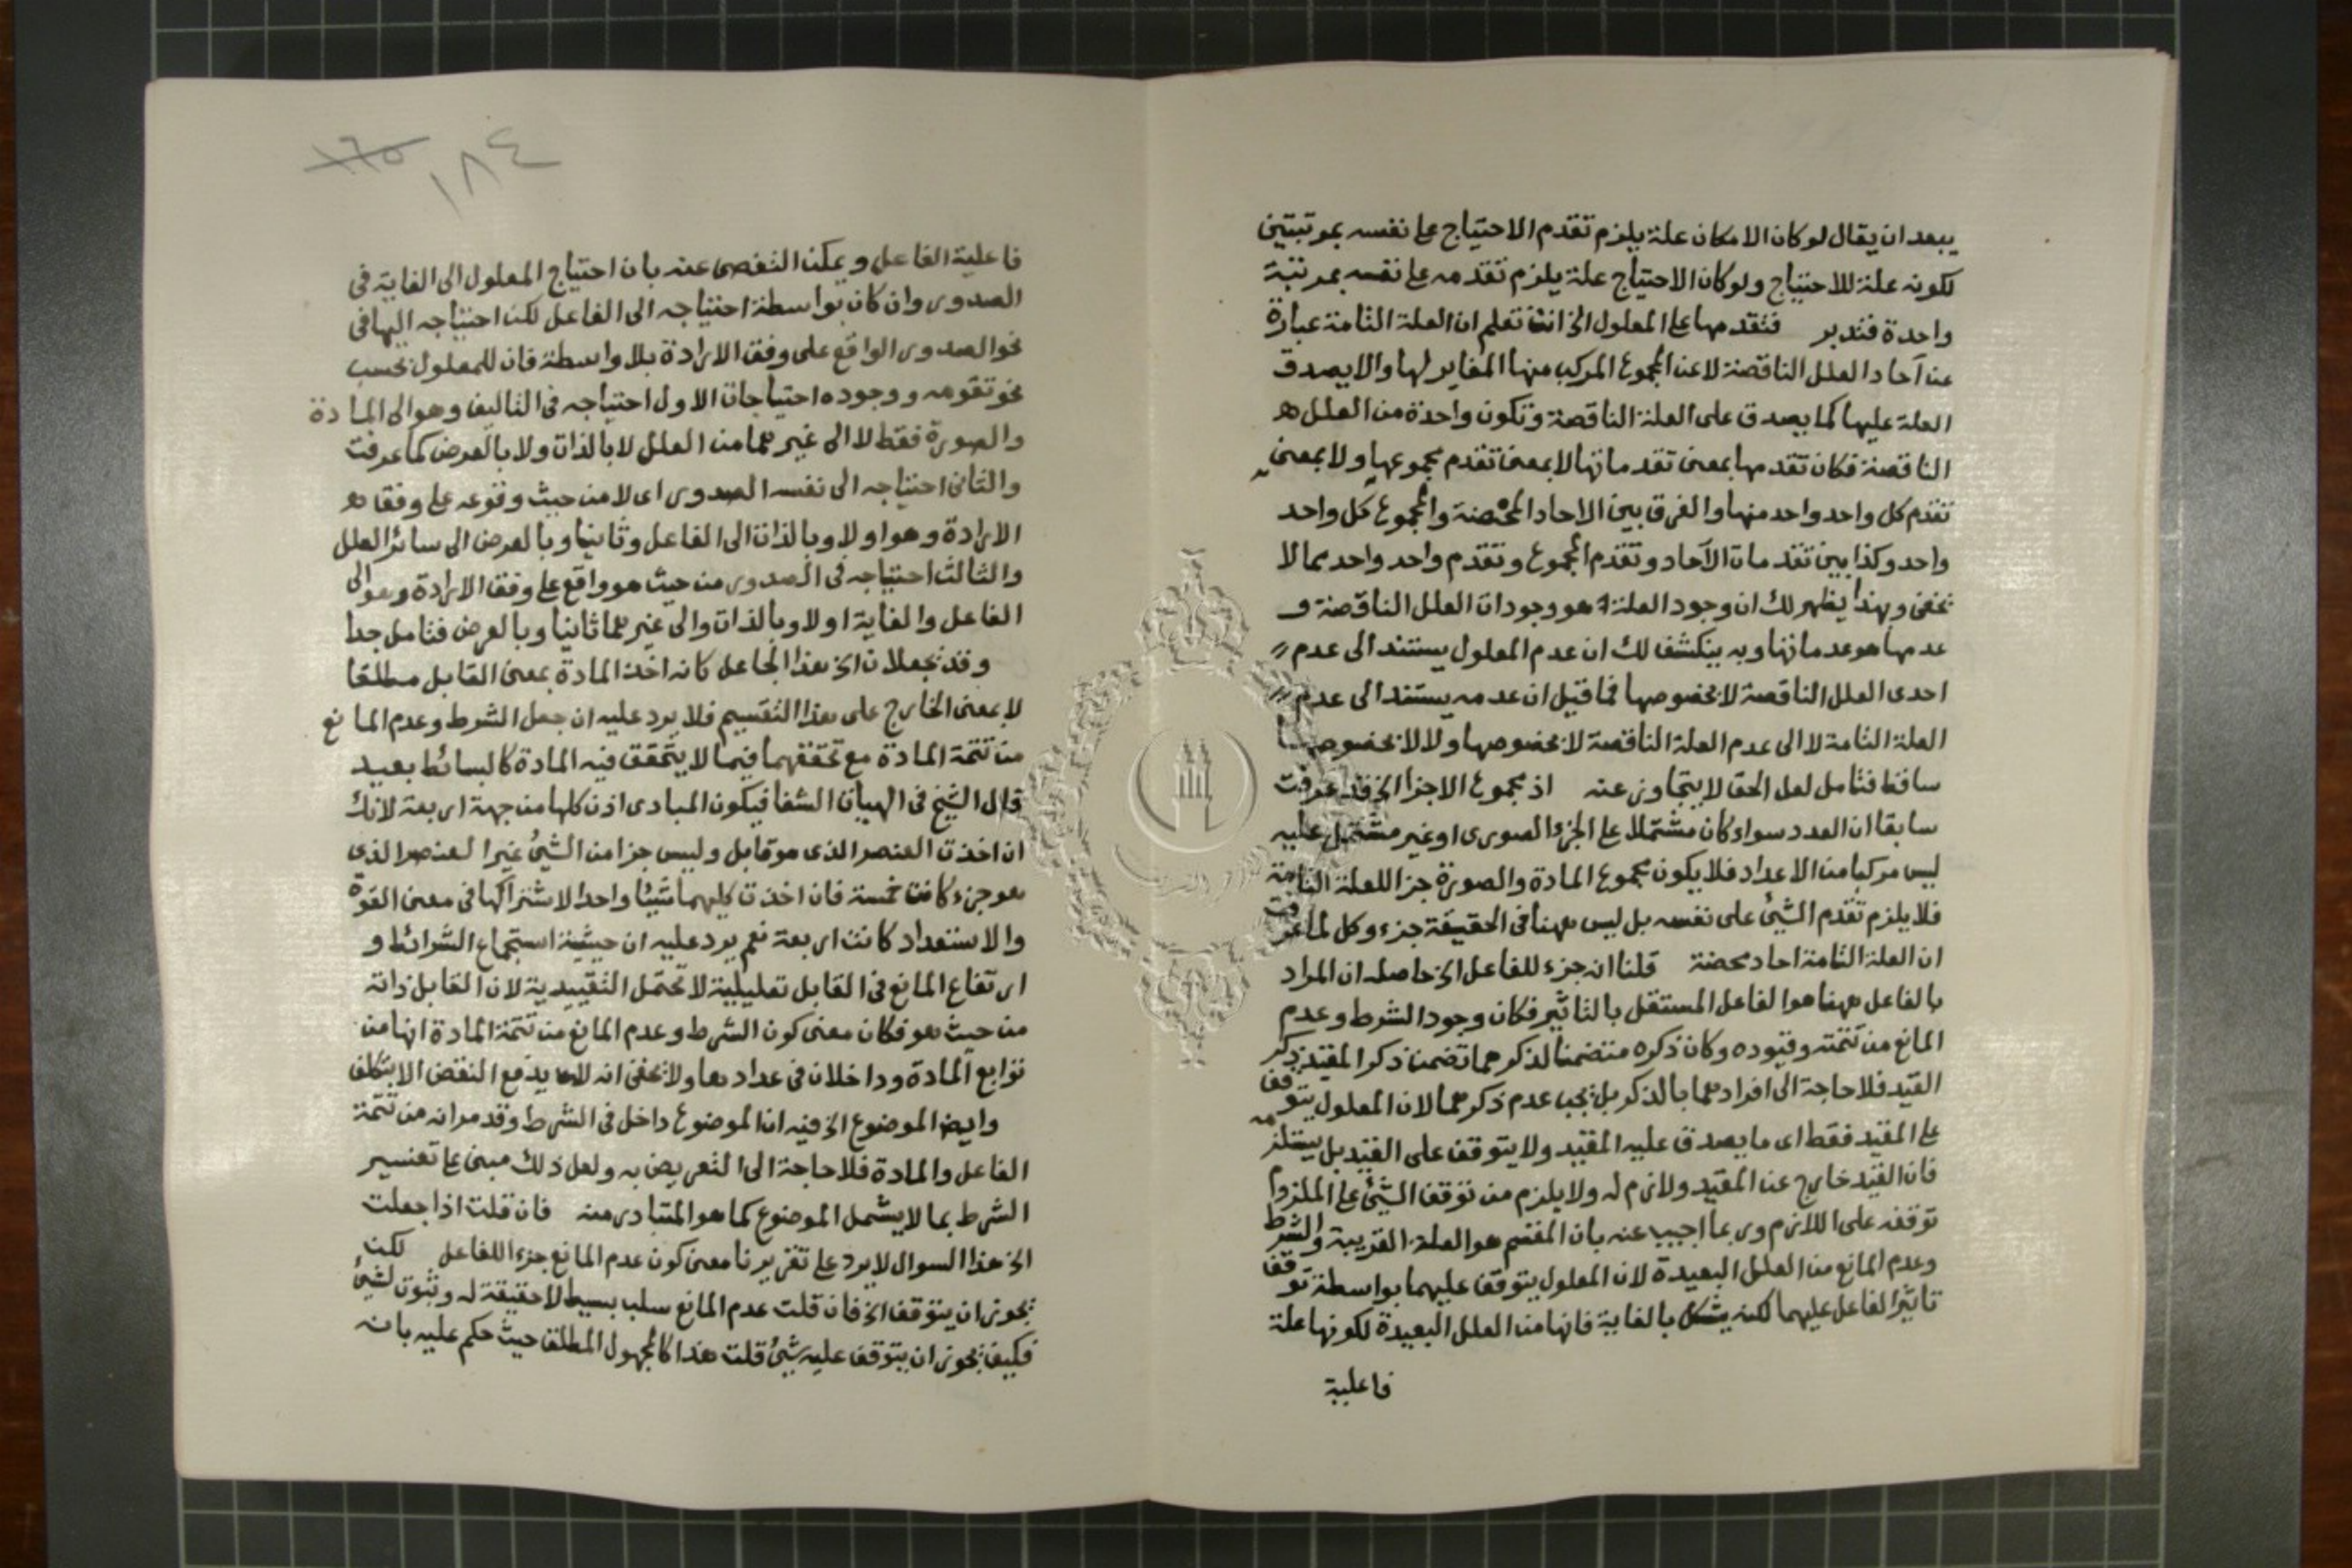 يبعد ان يقال لو كان الامكان علة يلزم تقدم الاحتياج على نفسه بمرتبتين
لكونه علة للاحتياج ولو كان الاحتياج علة يلزم تقدمه على نفسه بمرتبة
واحدة فتدبر فتقدمها على المعلول الخ انت تعلم ان العلة التامة عبارة
عن آحاد العلل الناقصة لا عن المجموع المركب منها المغاير لها والا يصدق
العلة عليها كما يصدق على العلة الناقصة وتكون واحدة من العلل
الناقصة فكان تقدمها بمعنى تقدماتها لا بمعنى تقدم مجموعها ولا بمعنى
تقدم كل واحد واحد منها والفرق بين الاحاد المحضة والمجموع كل واحد
واحد وكذا بين تقدمات الآحاد وتقدم المجموع وتقدم واحد واحد مما لا
يخفى وبهذا يظهر لك ان وجود العلة هو وجودات العلل الناقصة و
عدمها هو عدماتها وبه ينكشف لك ان عدم المعلول يستند الى عدم
احدى العلل الناقصة لا بخصوصها فما قيل ان عدمه يستند الى عدم
العلة التامة لا الى عدم العلة الناقصة لا بخصوصها ولا لا بخصوصها
ساقط فتامل لعل الحق لا يتجاوز عنه اذ مجموع الاجزا الخ قد عرفت
سابقا ان العدد سواء كان مشتملا على الجزء الصورى او غير مشتمل عليه
ليس مركبا من الاعداد فلا يكون مجموع المادة والصورة جزا للعلة التامة
فلا يلزم تقدم الشئ على نفسه بل ليس ههنا فى الحقيقة جزء وكل لما عرفت
ان العلة التامة احاد محضة قلنا انه جزء للفاعل الخ حاصله ان المراد
بالفاعل ههنا هو الفاعل المستقل بالتاثير فكان وجود الشرط وعدم
المانع من تتمته وقيوده وكان ذكره متضمنا لذكرهما تضمن ذكر المقيد ذكر
القيد فلا حاجة الى افرادهما بالذكر بل يجب عدم ذكرهما لان المعلول يتوقف
على المقيد فقط اى ما يصدق عليه المقيد ولا يتوقف على القيد بل يستلزمه
فان القيد خارج عن المقيد ولازم له ولا يلزم من توقف الشئ على الملزوم
توقفه على اللازم وربما اجيب عنه بان المقسم هو العلة القريبة والشرط
وعدم المانع من العلل البعيدة لان المعلول يتوقف عليهما بواسطة توقف
تاثير الفاعل عليهما لكنه يشكل بالغاية فانها من العلل البعيدة لكونها علة
فاعلية
١٦٥
١٨٤
فاعلية الفاعل ويمكن التفصى عنه بان احتياج المعلول الى الغاية فى
الصدور وان كان بواسطة احتياجه الى الفاعل لكن احتياجه اليها فى
نحو الصدور الواقع على وفق الارادة بلا واسطة فان للمعلول بحسب
نحو تقومه ووجوده احتياجات الاول احتياجه فى التاليف وهو الى المادة
والصورة فقط لا الى غيرهما من العلل لا بالذات ولا بالعرض كما عرفت
والثانى احتياجه الى نفس الصدور اى لا من حيث وقوعه على وفق
الارادة وهو اولا وبالذات الى الفاعل وثانيا وبالعرض الى سائر العلل
والثالث احتياجه فى الصدور من حيث هو واقع على وفق الارادة وهو الى
الفاعل والغاية اولا وبالذات والى غيرهما ثانيا وبالعرض فتامل جدا
وقد يجعلان الخ هذا الجاعل كانه اخذ المادة بمعنى القابل مطلقا
لا بمعنى الخارج على هذا التقسيم فلا يرد عليه ان جعل الشرط وعدم المانع
من تتمة المادة مع تحققهما فيما لا يتحقق فيه المادة كالبسائط بعيد
قال الشيخ فى الهيات الشفا فيكون المبادى اذن كلها من جهة اربعة لانك
ان اخذت العنصر الذى هو قابل وليس جزا من الشئ غير العنصر الذى
هو جزء كانت خمسة فان اخذت كليهما شيئا واحدا لاشتراكها فى معنى القوة
والاستعداد كانت اربعة نعم يرد عليه ان حيثية استجماع الشرائط و
ارتفاع المانع فى القابل تعليلية لا تحتمل التقييدية لان القابل ذاته
من حيث هو فكان معنى كون الشرط وعدم المانع من تتمة المادة انها من
توابع المادة وداخلان فى عدادها ولا يخفى انه لا يدفع النقض الا بتكلف
وايض الموضوع الخ فيه ان الموضوع داخل فى الشرط وقد مر انه من تتمة
الفاعل والمادة فلا حاجة الى التعريض به ولعل ذلك مبنى على تفسير
الشرط بما لا يشمل الموضوع كما هو المتبادر منه فان قلت اذا جعلت
الخ هذا السوال لا يرد على تقريرنا معنى كون عدم المانع جزءا للفاعل لكن
يجوز ان يتوقف الخ فان قلت عدم المانع سلب بسيط لا حقيقة له وثبوت لشئ
فكيف يجوز ان يتوقف عليه شئ قلت هذا كالمجهول المطلق حيث حكم عليه بانه